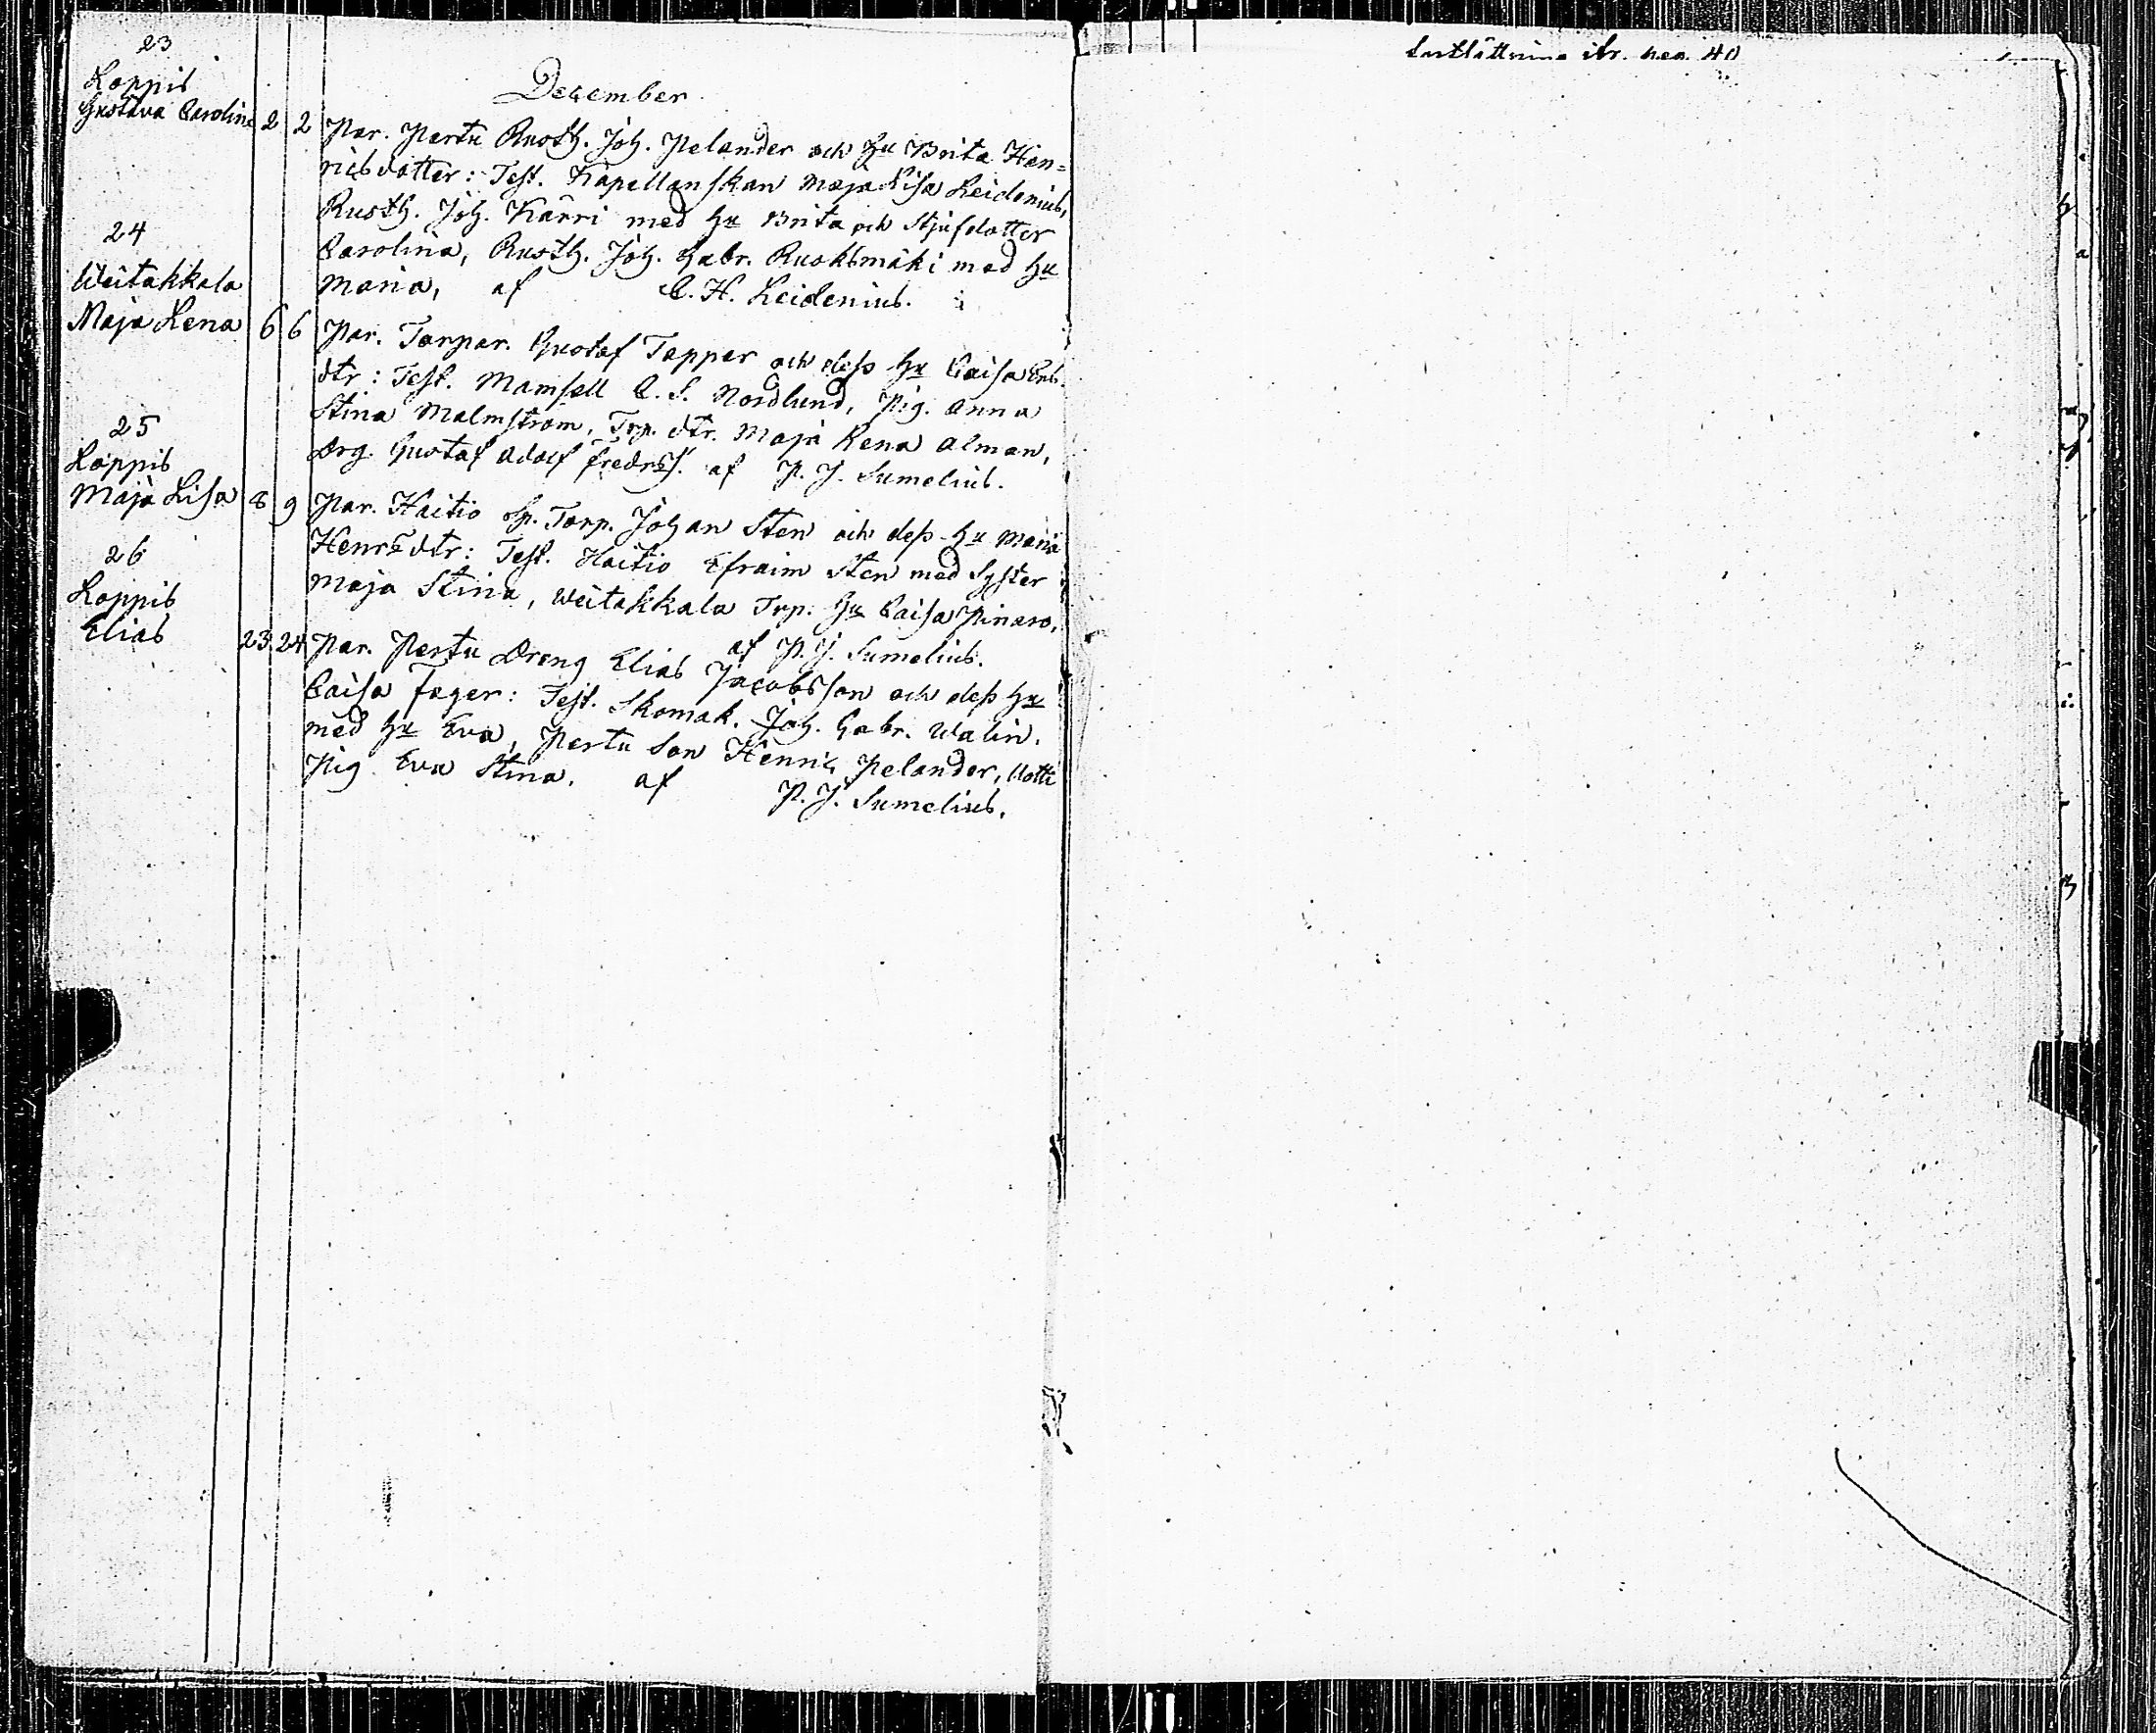 December
23
Loppis
Gustava Carolina 2 2 Par. Pertu Rusth. Joh. Pelander och Hu Brita Hen=
ricsdotter: Test. Kapellanskan Maja Lisa Leidenius,
Rusth. Joh. Kärri med Hu Brita och Stjufdotter
Carolina, Rusth. Joh. Gabr. Ruoksmäki med Hu
Maria, af C. H. Leidenius.
24
Weitakkala
Maja Lena 6 6 Par. Torpar. Gustaf Tapper och dess Hu Caisa Ers.
dtr: Test. Mamsell C. S. Nordlund, Pig. Anna
Stina Malmström, Trp. dtr. Maja Lena Alman,
Drg. Gustaf Adolf Fredrss. af P. J. Sumelius.
25
Loppis
Maja Lisa 8 9 Par. Haitio Sp. Torp. Johan Sten och dess Hu Maria
Henrsdtr: Test. Haitio Efraim Sten med Syster
Maja Stina, Weitakkala Trp. Hu Caisa Pinaro,
af P. J. Sumelius.
26
Loppis
Elias 23 24 Par. Pertu Dreng Elias Jacobsson och dess Hu
Caisa Fager: Test. Skomak. Joh. Gabr. Walin.
med Hu Eva, Pertu Son Henric Pelander,
Pig. Eva Stina. af P. J. Sumelius.
40